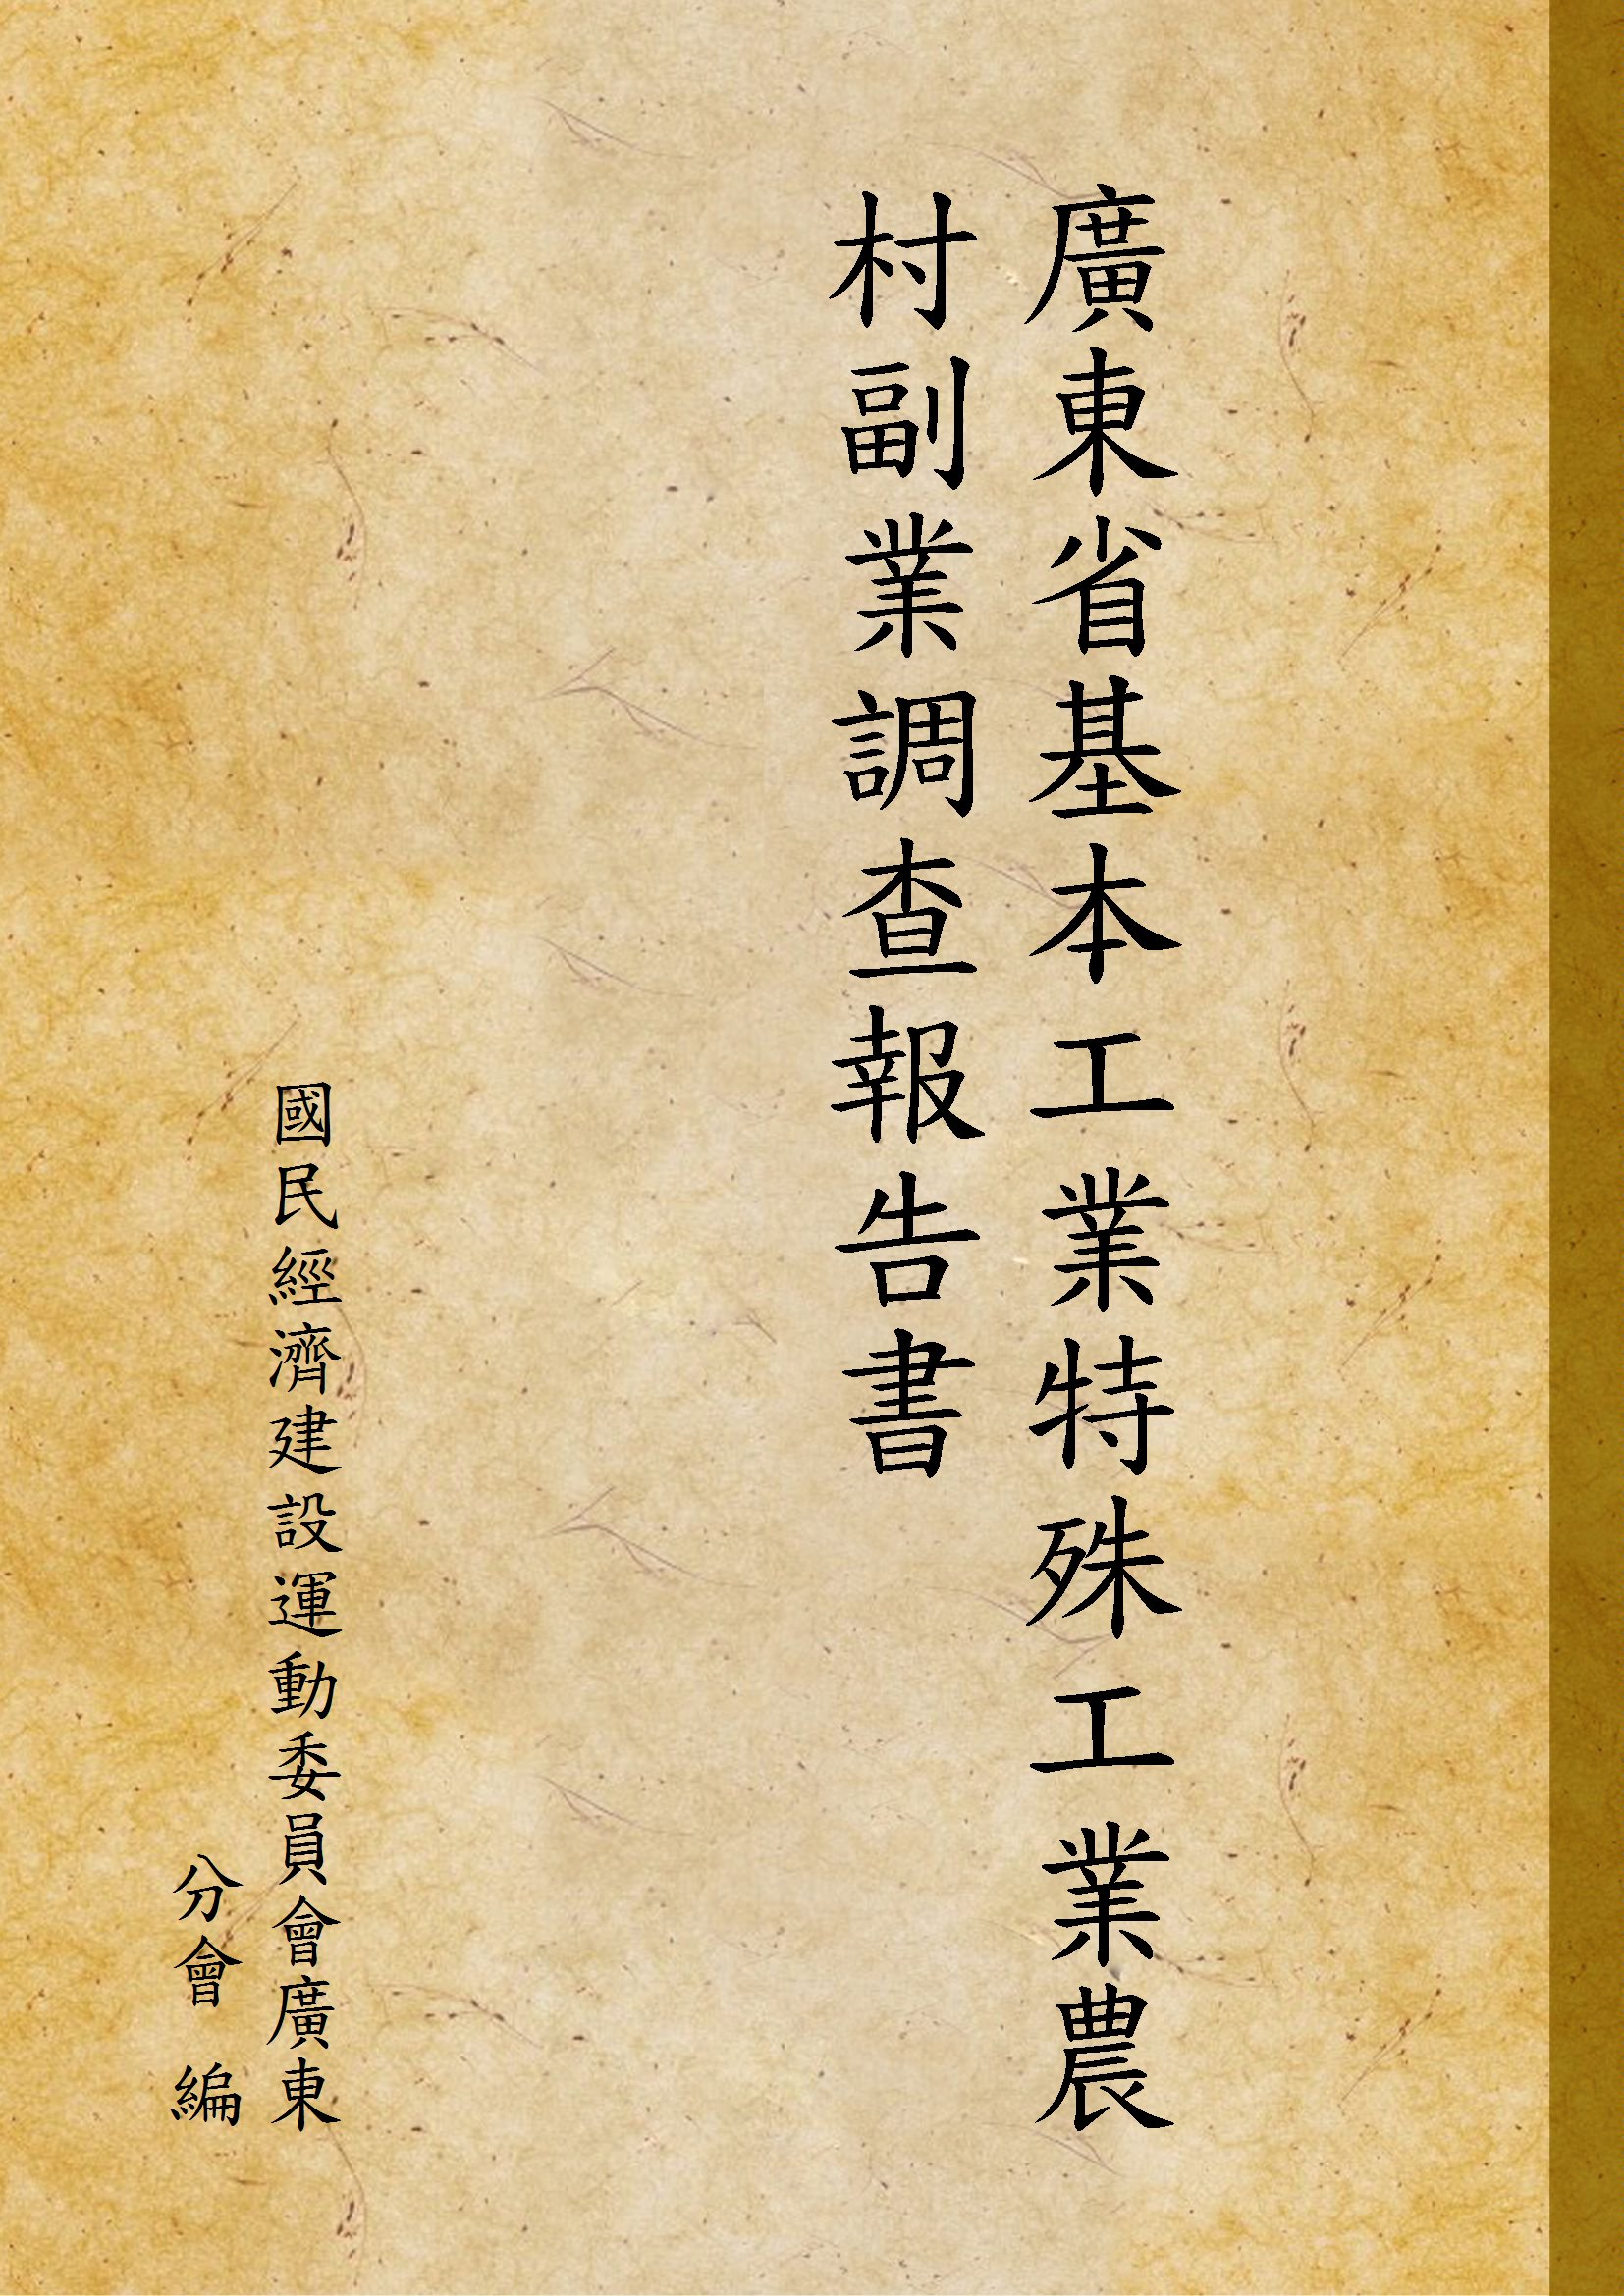 廣東省基本工業特殊工業農
村副業調查報告書
國民經濟建設運動委員會廣東
分會 編